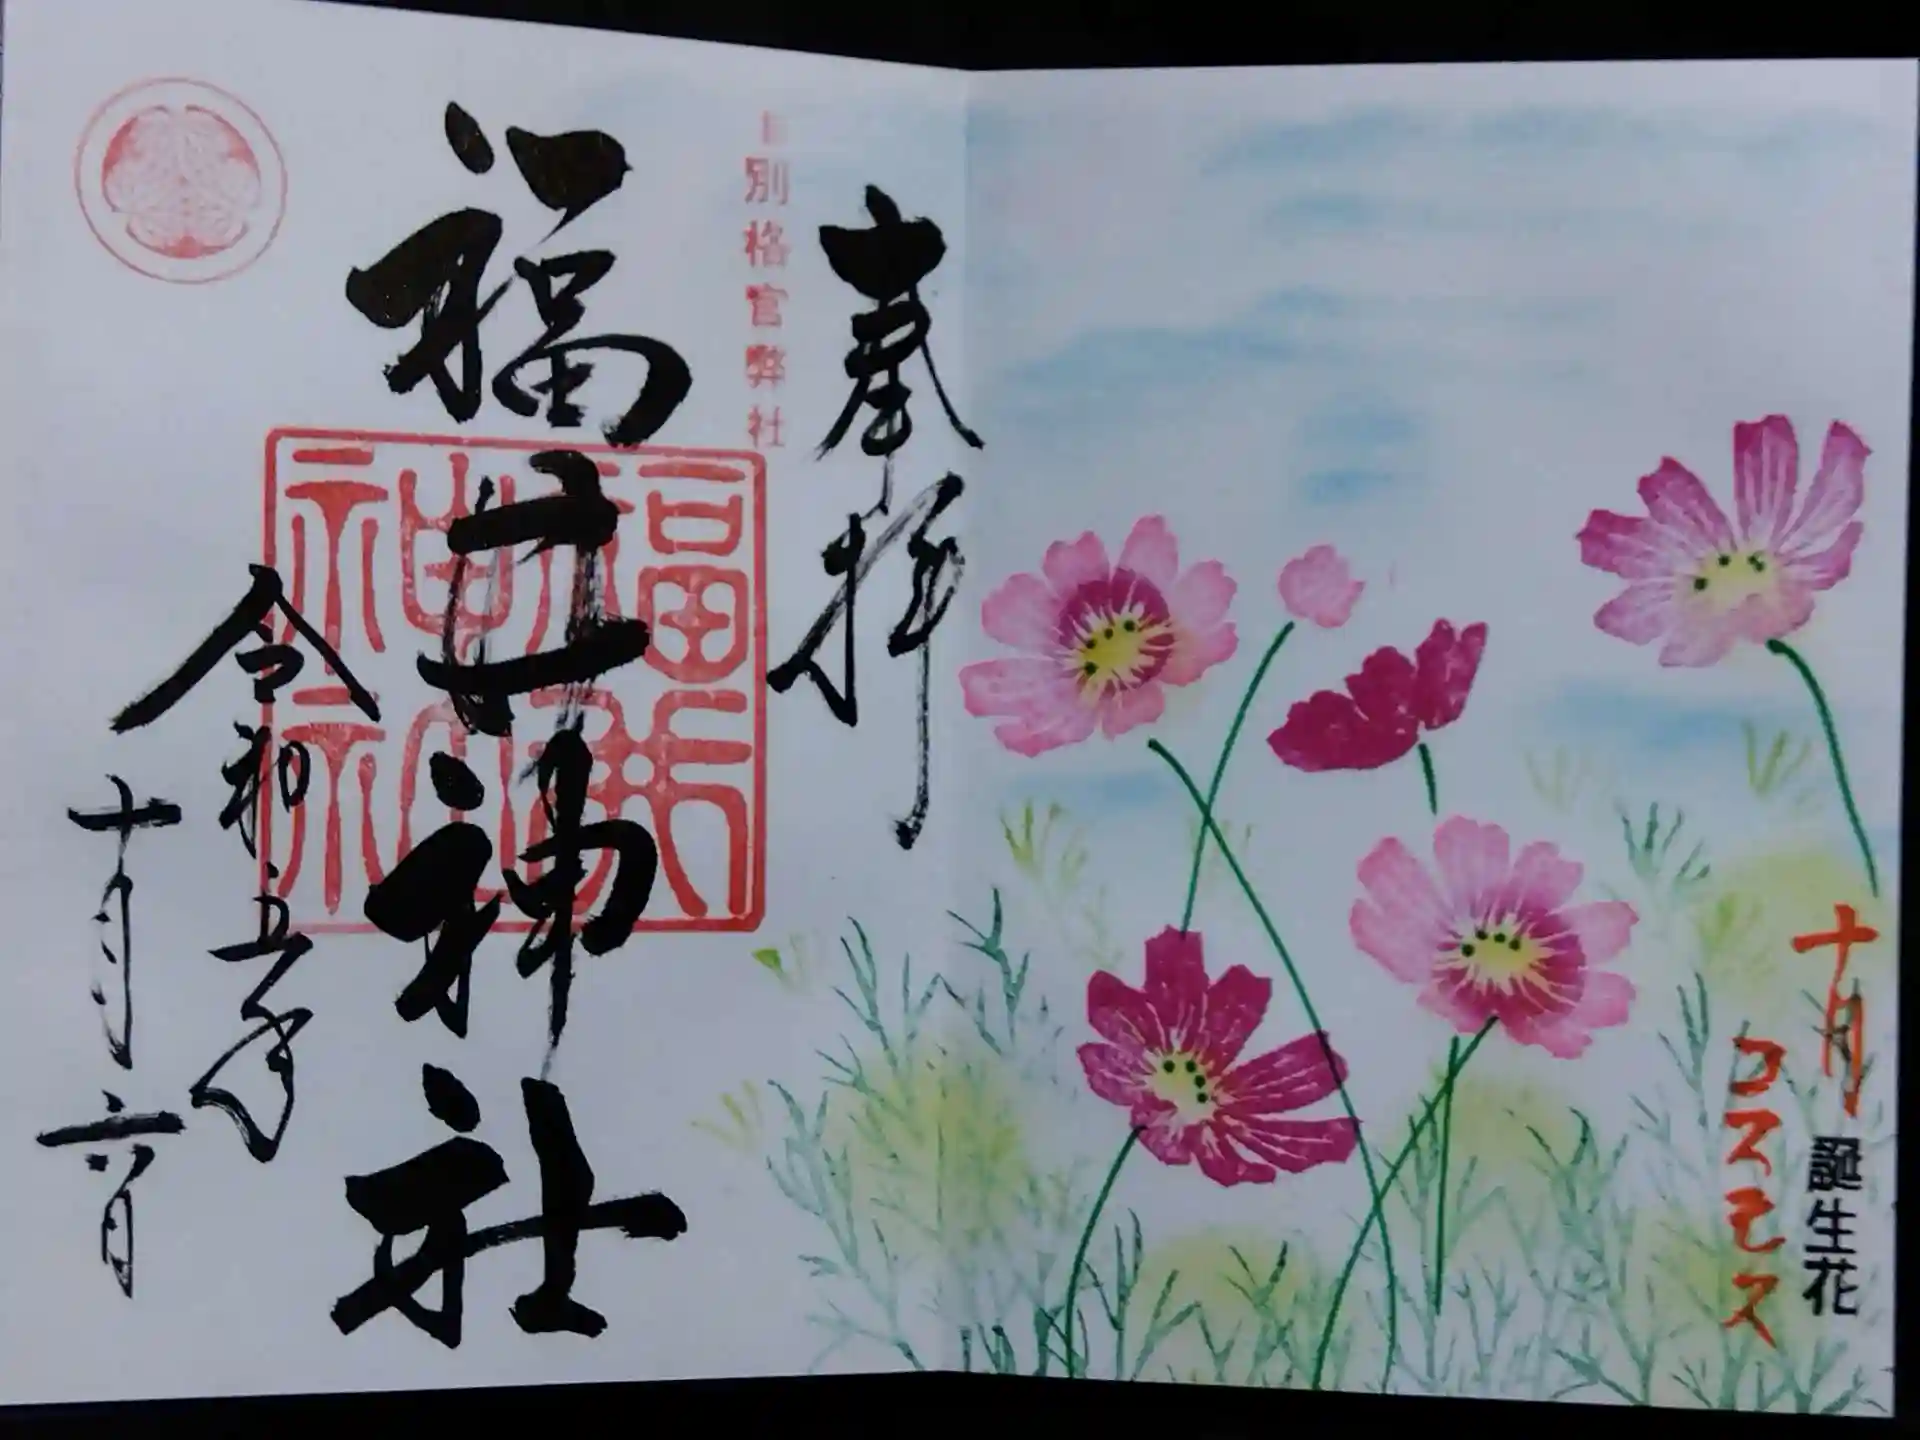 十月
誕生花
コスモス
奉拝
別格官弊社
福井神社
令和五年
十月六日